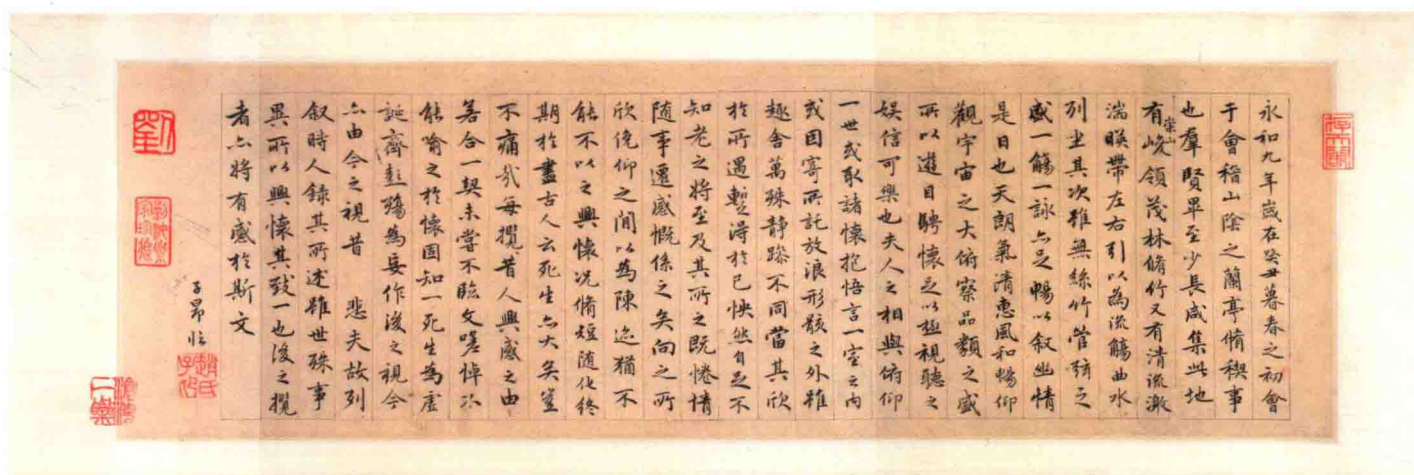 永和九年歲在癸丑暮春之初會
于會稽山陰之蘭亭脩稧事
也羣賢畢至少長咸集此地
有崇山峻領茂林脩竹又有清流激
湍暎帶左右引以為流觴曲水
列坐其次雖無絲竹管弦之
盛一觴一詠亦足暢以叙幽情
是日也天朗氣清惠風和暢仰
觀宇宙之大俯察品類之盛
所以遊目騁懷足以極視聽之
娛信可樂也夫人之相與俯仰
一世或取諸懷抱悟言一室之内
或因寄所託放浪形骸之外雖
趣舍萬殊静躁不同當其欣
於所遇暫得於己怏然自足不
知老之將至及其所之既惓情
随事遷感慨係之矣向之所
欣俛仰之間以為陳迹猶不
能不以之興懷況脩短随化終
期於盡古人云死生亦大矣豈
不痛哉每攬昔人興感之由
若合一契未嘗不臨文嗟悼不
能喻之於懷固知一死生為虛
誕齊彭殤為妄作後之視今
亦由今之視昔 悲夫故列
叙時人錄其所述雖世殊事
異所以興懷其致一也後之攬
者亦將有感於斯文
子昂臨
趙氏子昂
劉